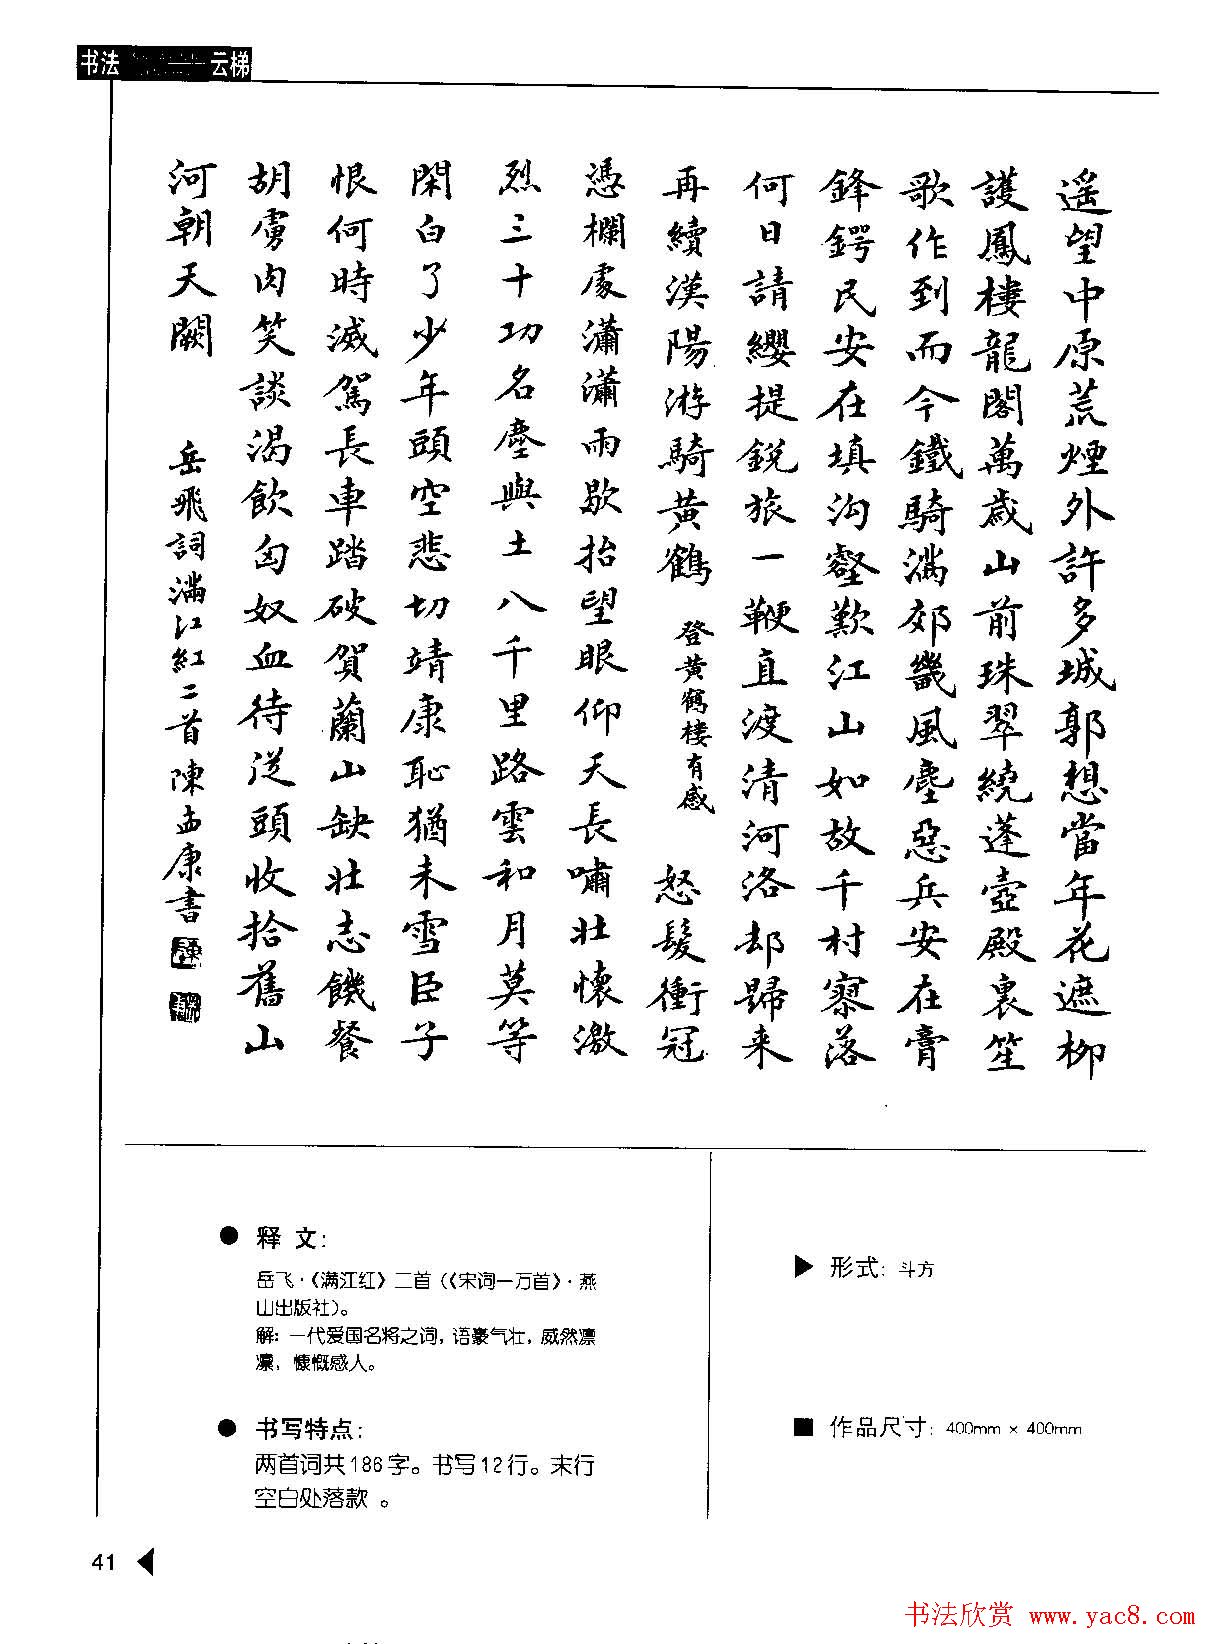 书法 云梯
遥望中原荒煙外許多城郭想當年花遮柳
護鳳樓龍閣萬歲山前珠翠繞蓬壺殿裏笙
歌作到而今鐵騎滿郊畿風塵惡兵安在膏
鋒鍔民安在填沟壑歎江山如故千村寥落
何日請纓提鋭旅一鞭直渡清河洛却歸来
再續漢陽游騎黄鶴 登黄鶴楼有感 怒髮衝冠
憑欄處瀟瀟雨歇抬望眼仰天長嘯壮懷激
烈三十功名塵與土八千里路雲和月莫等
閑白了少年頭空悲切靖康恥猶未雪臣子
恨何時滅駕長車踏破賀蘭山缺壮志饑餐
胡虜肉笑談渴飲匈奴血待従頭收拾舊山
河朝天闕 岳飛詞滿江紅二首陳孟康書
● 释 文:
岳飞·《满江红》二首(《宋词一万首》·燕
山出版社)。
解: 一代爱国名将之词,语豪气壮,威然凛
凛,慷慨感人。
● 书写特点:
两首词共186字。书写12行。末行
空白处落款。
▶ 形式: 斗方
■ 作品尺寸: 400mm × 400mm
41 ◀
书法欣赏 www.yac8.com